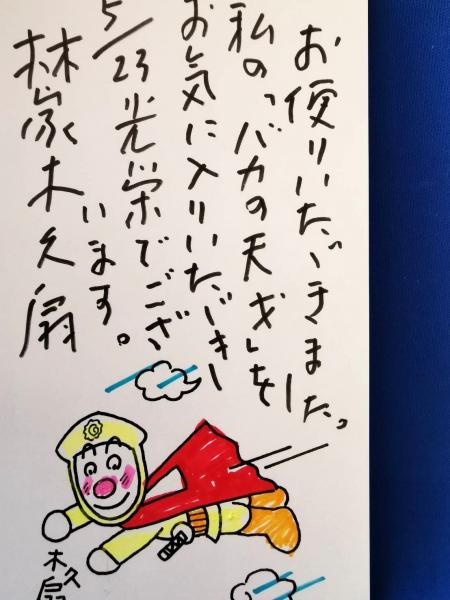 お便りいたゞきました。
私の「バカの天才」を
お気に入りいたゞき
5/23光栄でござ
います。
林家木久扇
木久扇